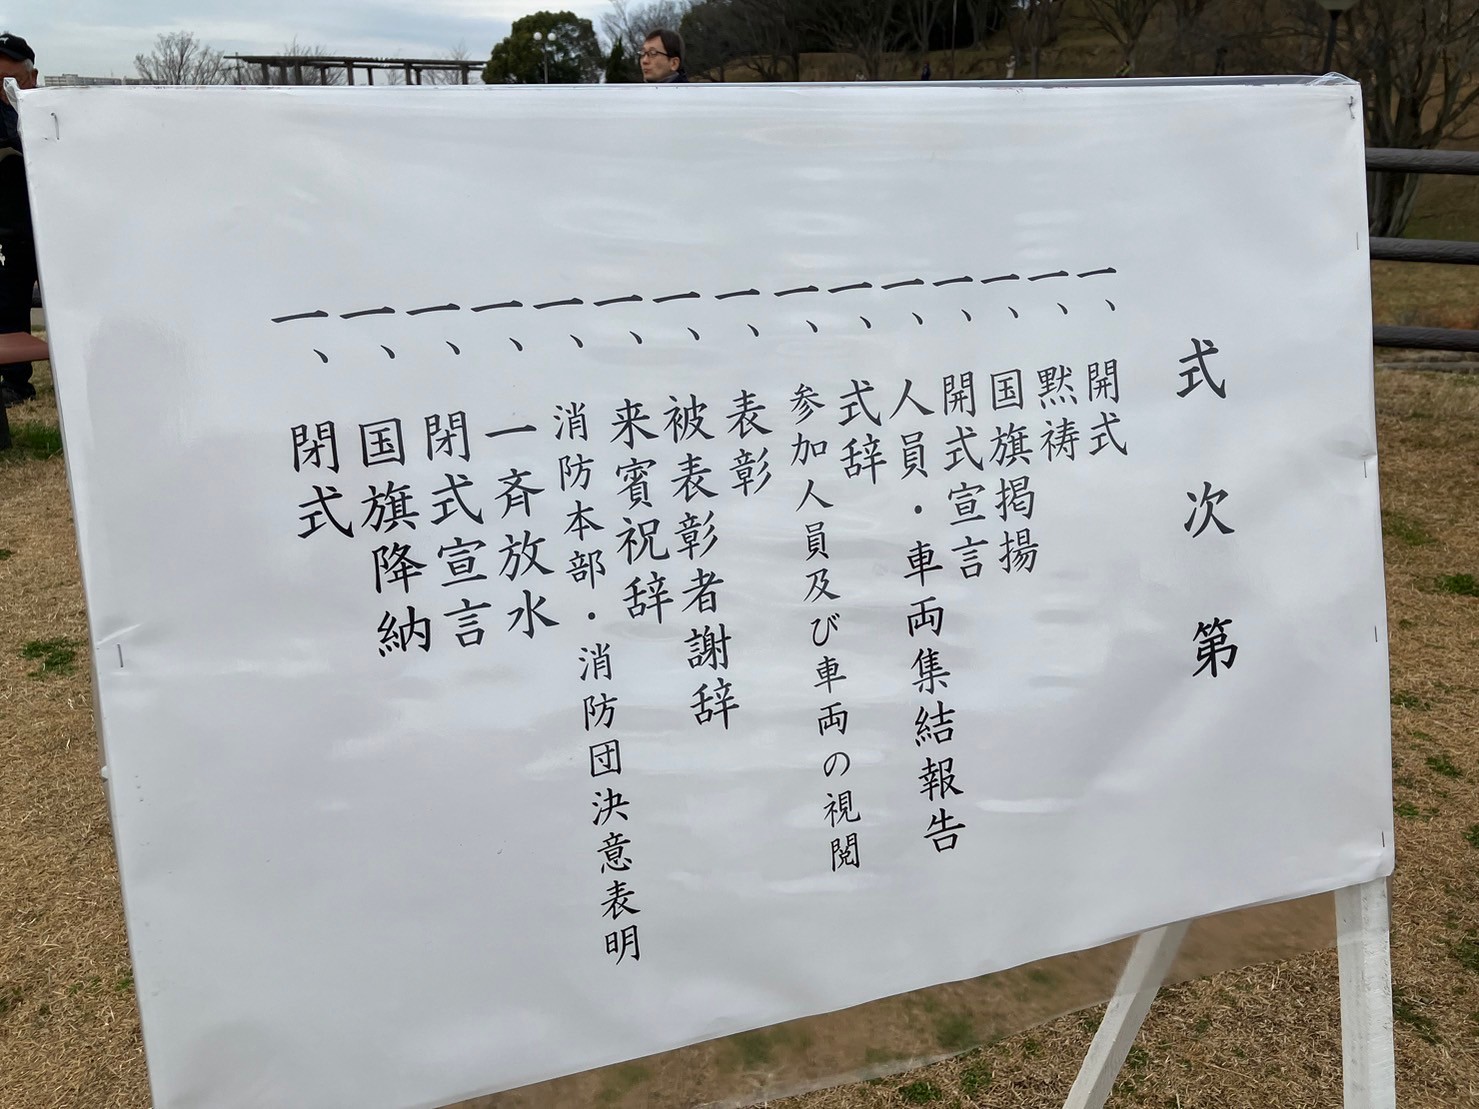 式次第
一、開式
一、黙祷
一、国旗掲揚
一、開式宣言
一、人員・車両集結報告
一、式辞
一、参加人員及び車両の視閲
一、表彰
一、被表彰者謝辞
一、来賓祝辞
一、消防本部・消防団決意表明
一、一斉放水
一、閉式宣言
一、国旗降納
一、閉式